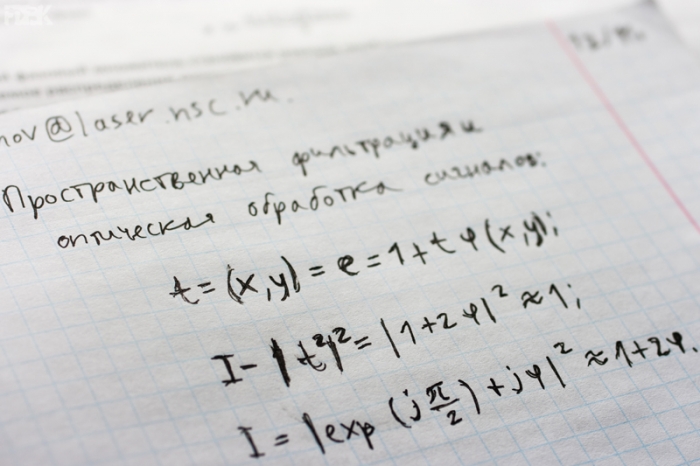 nov@laser.nsc.ru.
Пространственная фильтрация и
оптическая обработка сигналов:
t = (x,y) = e = 1 + t φ(x,y);
I - |t²|² = |1+2φ|² ≈ 1;
I = |exp (j π/2) + jφ|² ≈ 1+2φ.